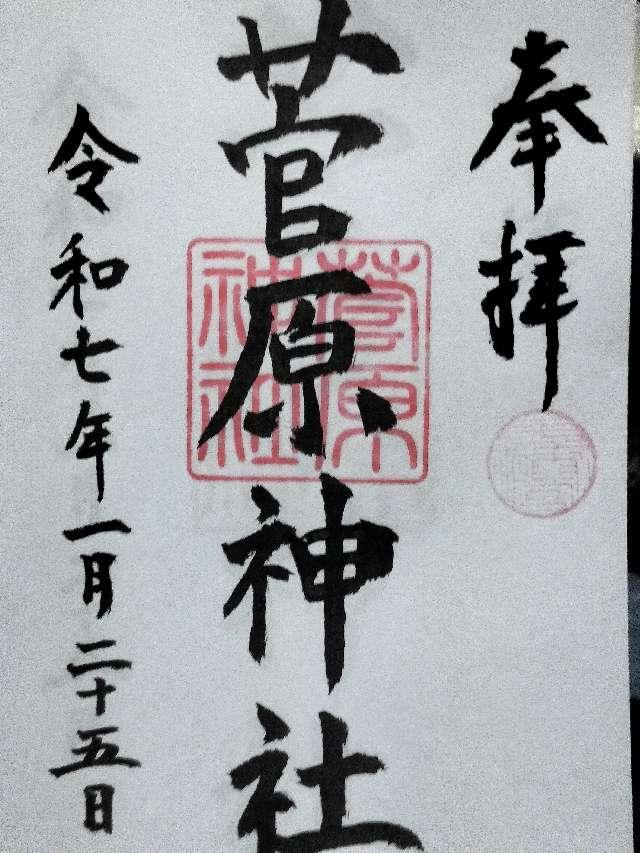 奉拝
菅原神社
菅原
神社
令和七年一月二十五日